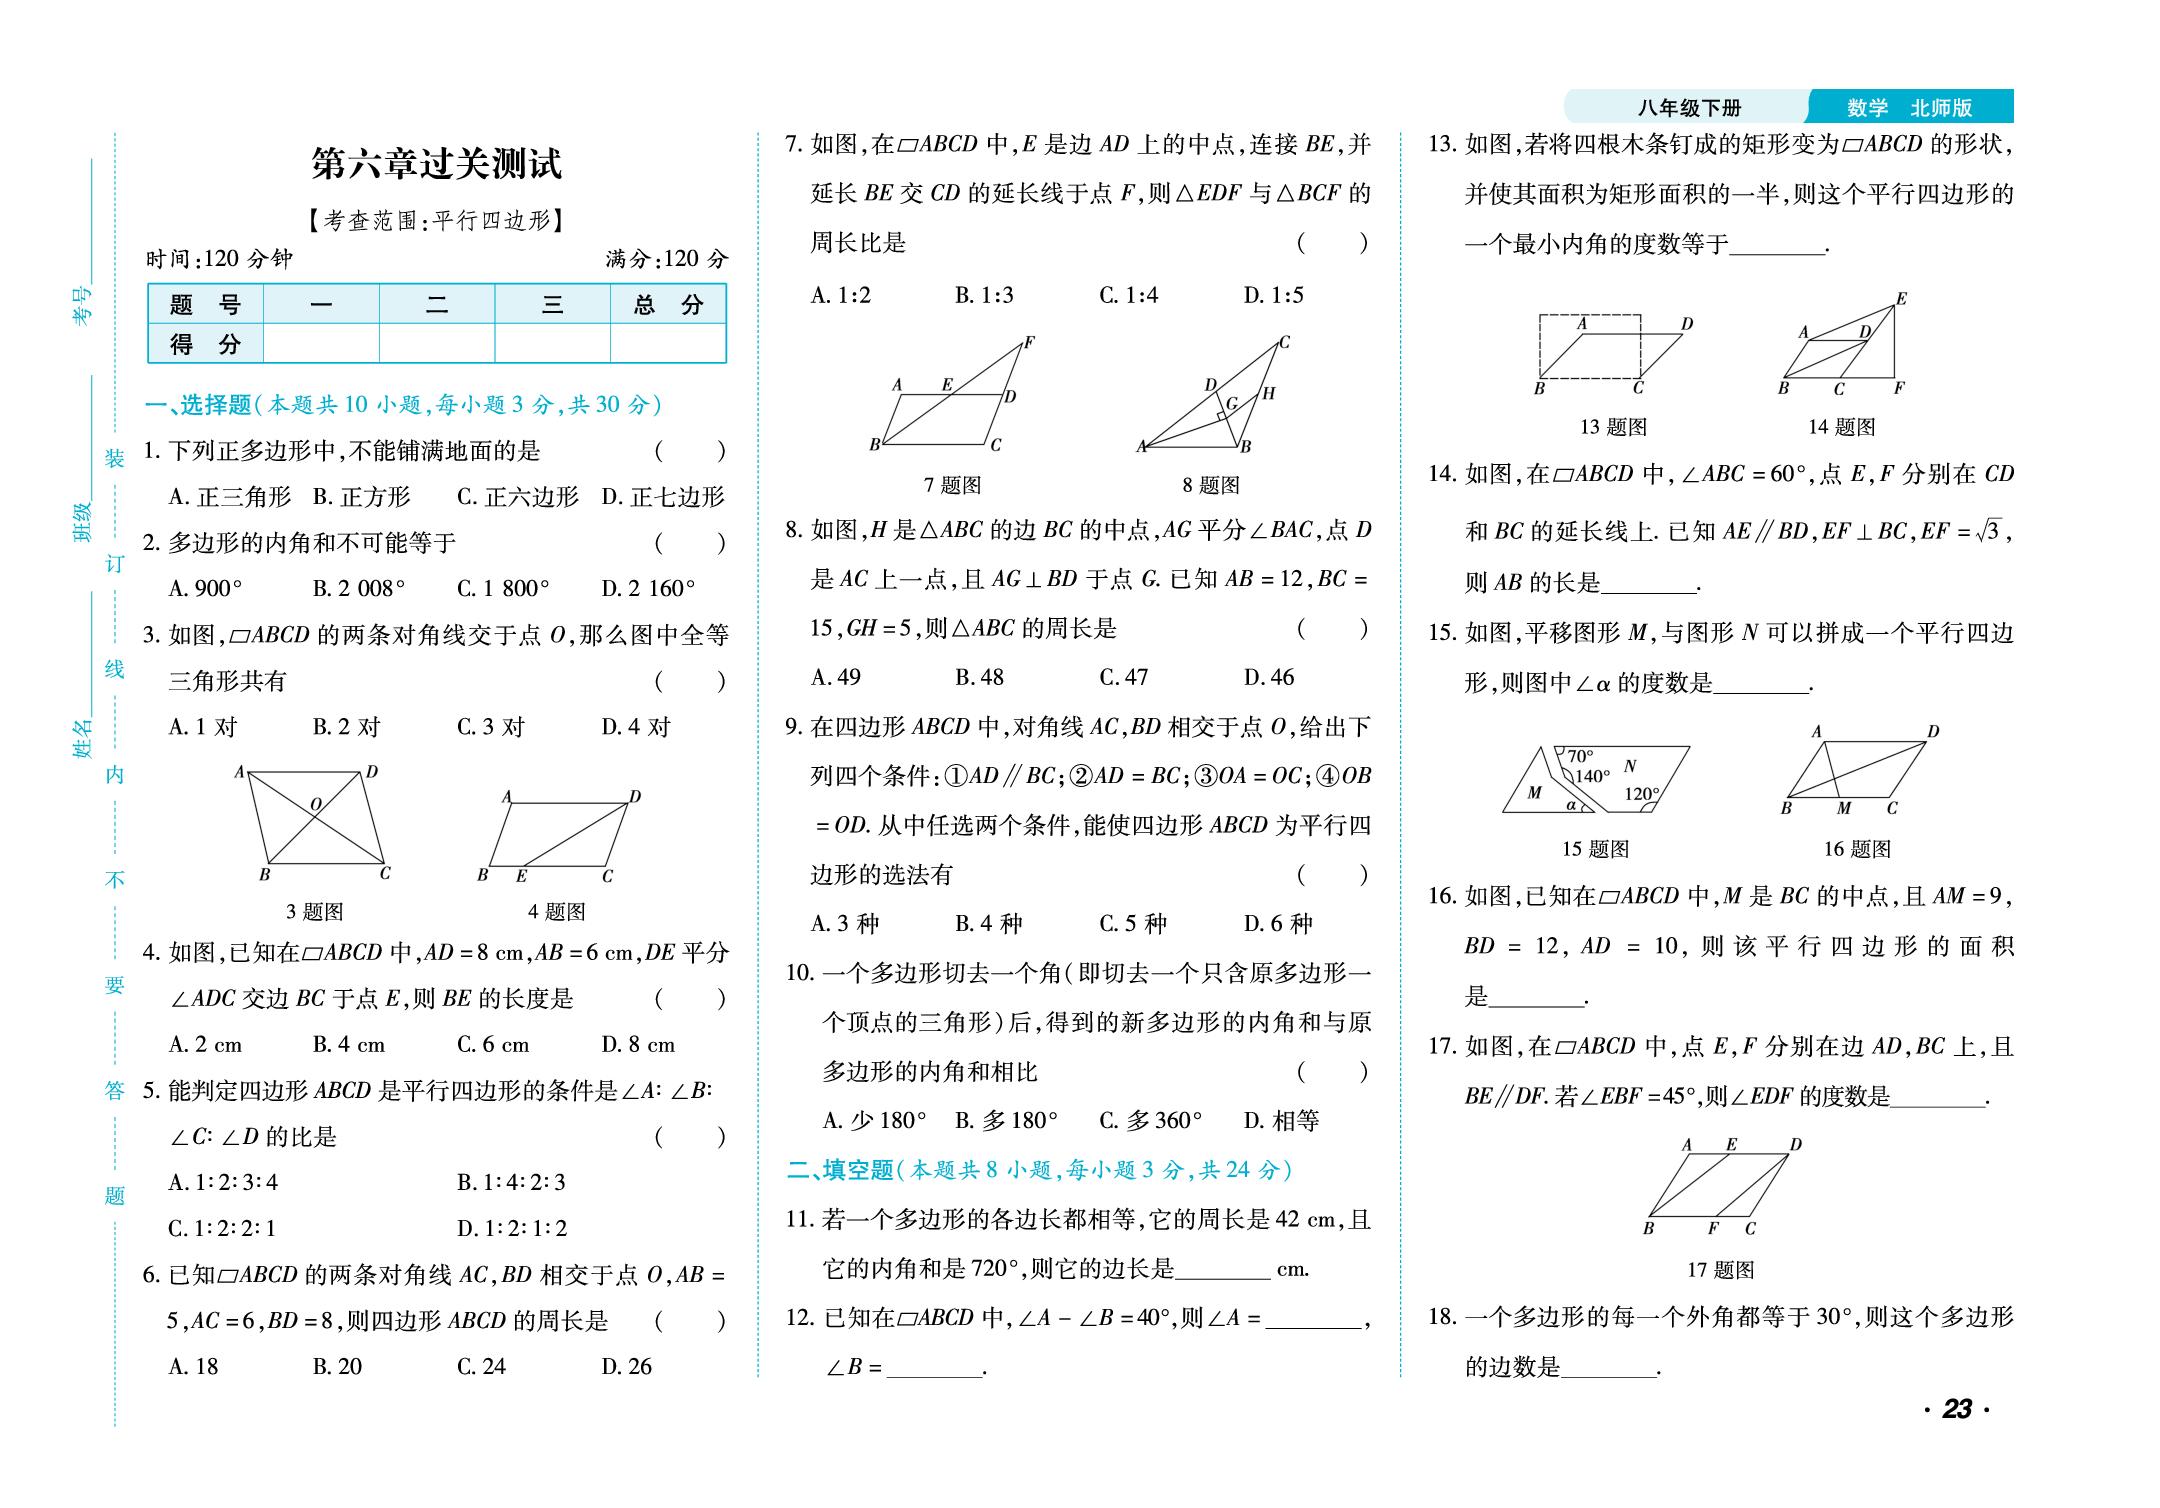 八年级下册 数学 北师版
考号
班级
姓名
装
订
线
内
不
要
答
题
第六章过关测试
【考查范围:平行四边形】
时间:120 分钟 满分:120 分
题 号 一 二 三 总 分
得 分
一、选择题(本题共 10 小题,每小题 3 分,共 30 分)
1. 下列正多边形中,不能铺满地面的是 ( )
A. 正三角形 B. 正方形 C. 正六边形 D. 正七边形
2. 多边形的内角和不可能等于 ( )
A. 900° B. 2 008° C. 1 800° D. 2 160°
3. 如图,▱ABCD 的两条对角线交于点 O,那么图中全等
三角形共有 ( )
A. 1 对 B. 2 对 C. 3 对 D. 4 对
A D O B C
3 题图
A D B E C
4 题图
4. 如图,已知在▱ABCD 中,AD = 8 cm,AB = 6 cm,DE 平分
∠ADC 交边 BC 于点 E,则 BE 的长度是 ( )
A. 2 cm B. 4 cm C. 6 cm D. 8 cm
5. 能判定四边形 ABCD 是平行四边形的条件是∠A∶∠B∶
∠C∶∠D 的比是 ( )
A. 1∶2∶3∶4 B. 1∶4∶2∶3
C. 1∶2∶2∶1 D. 1∶2∶1∶2
6. 已知▱ABCD 的两条对角线 AC,BD 相交于点 O,AB =
5,AC = 6,BD = 8,则四边形 ABCD 的周长是 ( )
A. 18 B. 20 C. 24 D. 26
7. 如图,在▱ABCD 中,E 是边 AD 上的中点,连接 BE,并
延长 BE 交 CD 的延长线于点 F,则△EDF 与△BCF 的
周长比是 ( )
A. 1∶2 B. 1∶3 C. 1∶4 D. 1∶5
F A E D B C
7 题图
C D H G A B
8 题图
8. 如图,H 是△ABC 的边 BC 的中点,AG 平分∠BAC,点 D
是 AC 上一点,且 AG⊥BD 于点 G. 已知 AB = 12,BC =
15,GH = 5,则△ABC 的周长是 ( )
A. 49 B. 48 C. 47 D. 46
9. 在四边形 ABCD 中,对角线 AC,BD 相交于点 O,给出下
列四个条件:①AD∥BC;②AD = BC;③OA = OC;④OB
= OD. 从中任选两个条件,能使四边形 ABCD 为平行四
边形的选法有 ( )
A. 3 种 B. 4 种 C. 5 种 D. 6 种
10. 一个多边形切去一个角(即切去一个只含原多边形一
个顶点的三角形)后,得到的新多边形的内角和与原
多边形的内角和相比 ( )
A. 少 180° B. 多 180° C. 多 360° D. 相等
二、填空题(本题共 8 小题,每小题 3 分,共 24 分)
11. 若一个多边形的各边长都相等,它的周长是 42 cm,且
它的内角和是 720°,则它的边长是________ cm.
12. 已知在▱ABCD 中,∠A - ∠B = 40°,则∠A = ________,
∠B = ________.
13. 如图,若将四根木条钉成的矩形变为▱ABCD 的形状,
并使其面积为矩形面积的一半,则这个平行四边形的
一个最小内角的度数等于________.
A D B C
13 题图
E A D B C F
14 题图
14. 如图,在▱ABCD 中,∠ABC = 60°,点 E,F 分别在 CD
和 BC 的延长线上. 已知 AE∥BD,EF⊥BC,EF = √3,
则 AB 的长是________.
15. 如图,平移图形 M,与图形 N 可以拼成一个平行四边
形,则图中∠α 的度数是________.
70° 140° N M α 120°
15 题图
A D B M C
16 题图
16. 如图,已知在▱ABCD 中,M 是 BC 的中点,且 AM = 9,
BD = 12, AD = 10, 则该平行四边形的面积
是________.
17. 如图,在▱ABCD 中,点 E,F 分别在边 AD,BC 上,且
BE∥DF. 若∠EBF = 45°,则∠EDF 的度数是________.
A E D B F C
17 题图
18. 一个多边形的每一个外角都等于 30°,则这个多边形
的边数是________.
· 23 ·